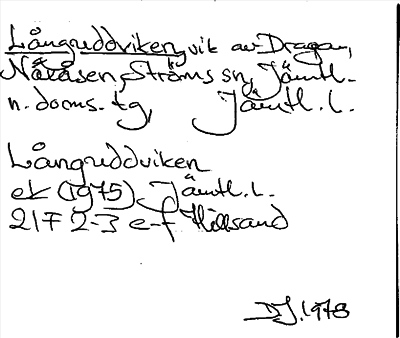 Långuddviken, vik av Dragan,
Nåtåsen, Ströms sn, Jämtl.
n. doms. tg, Jämtl. l.
Långuddviken
ek (1975), Jämtl. l.
21F 2-3 e-f Hillsand
DJ. 1978